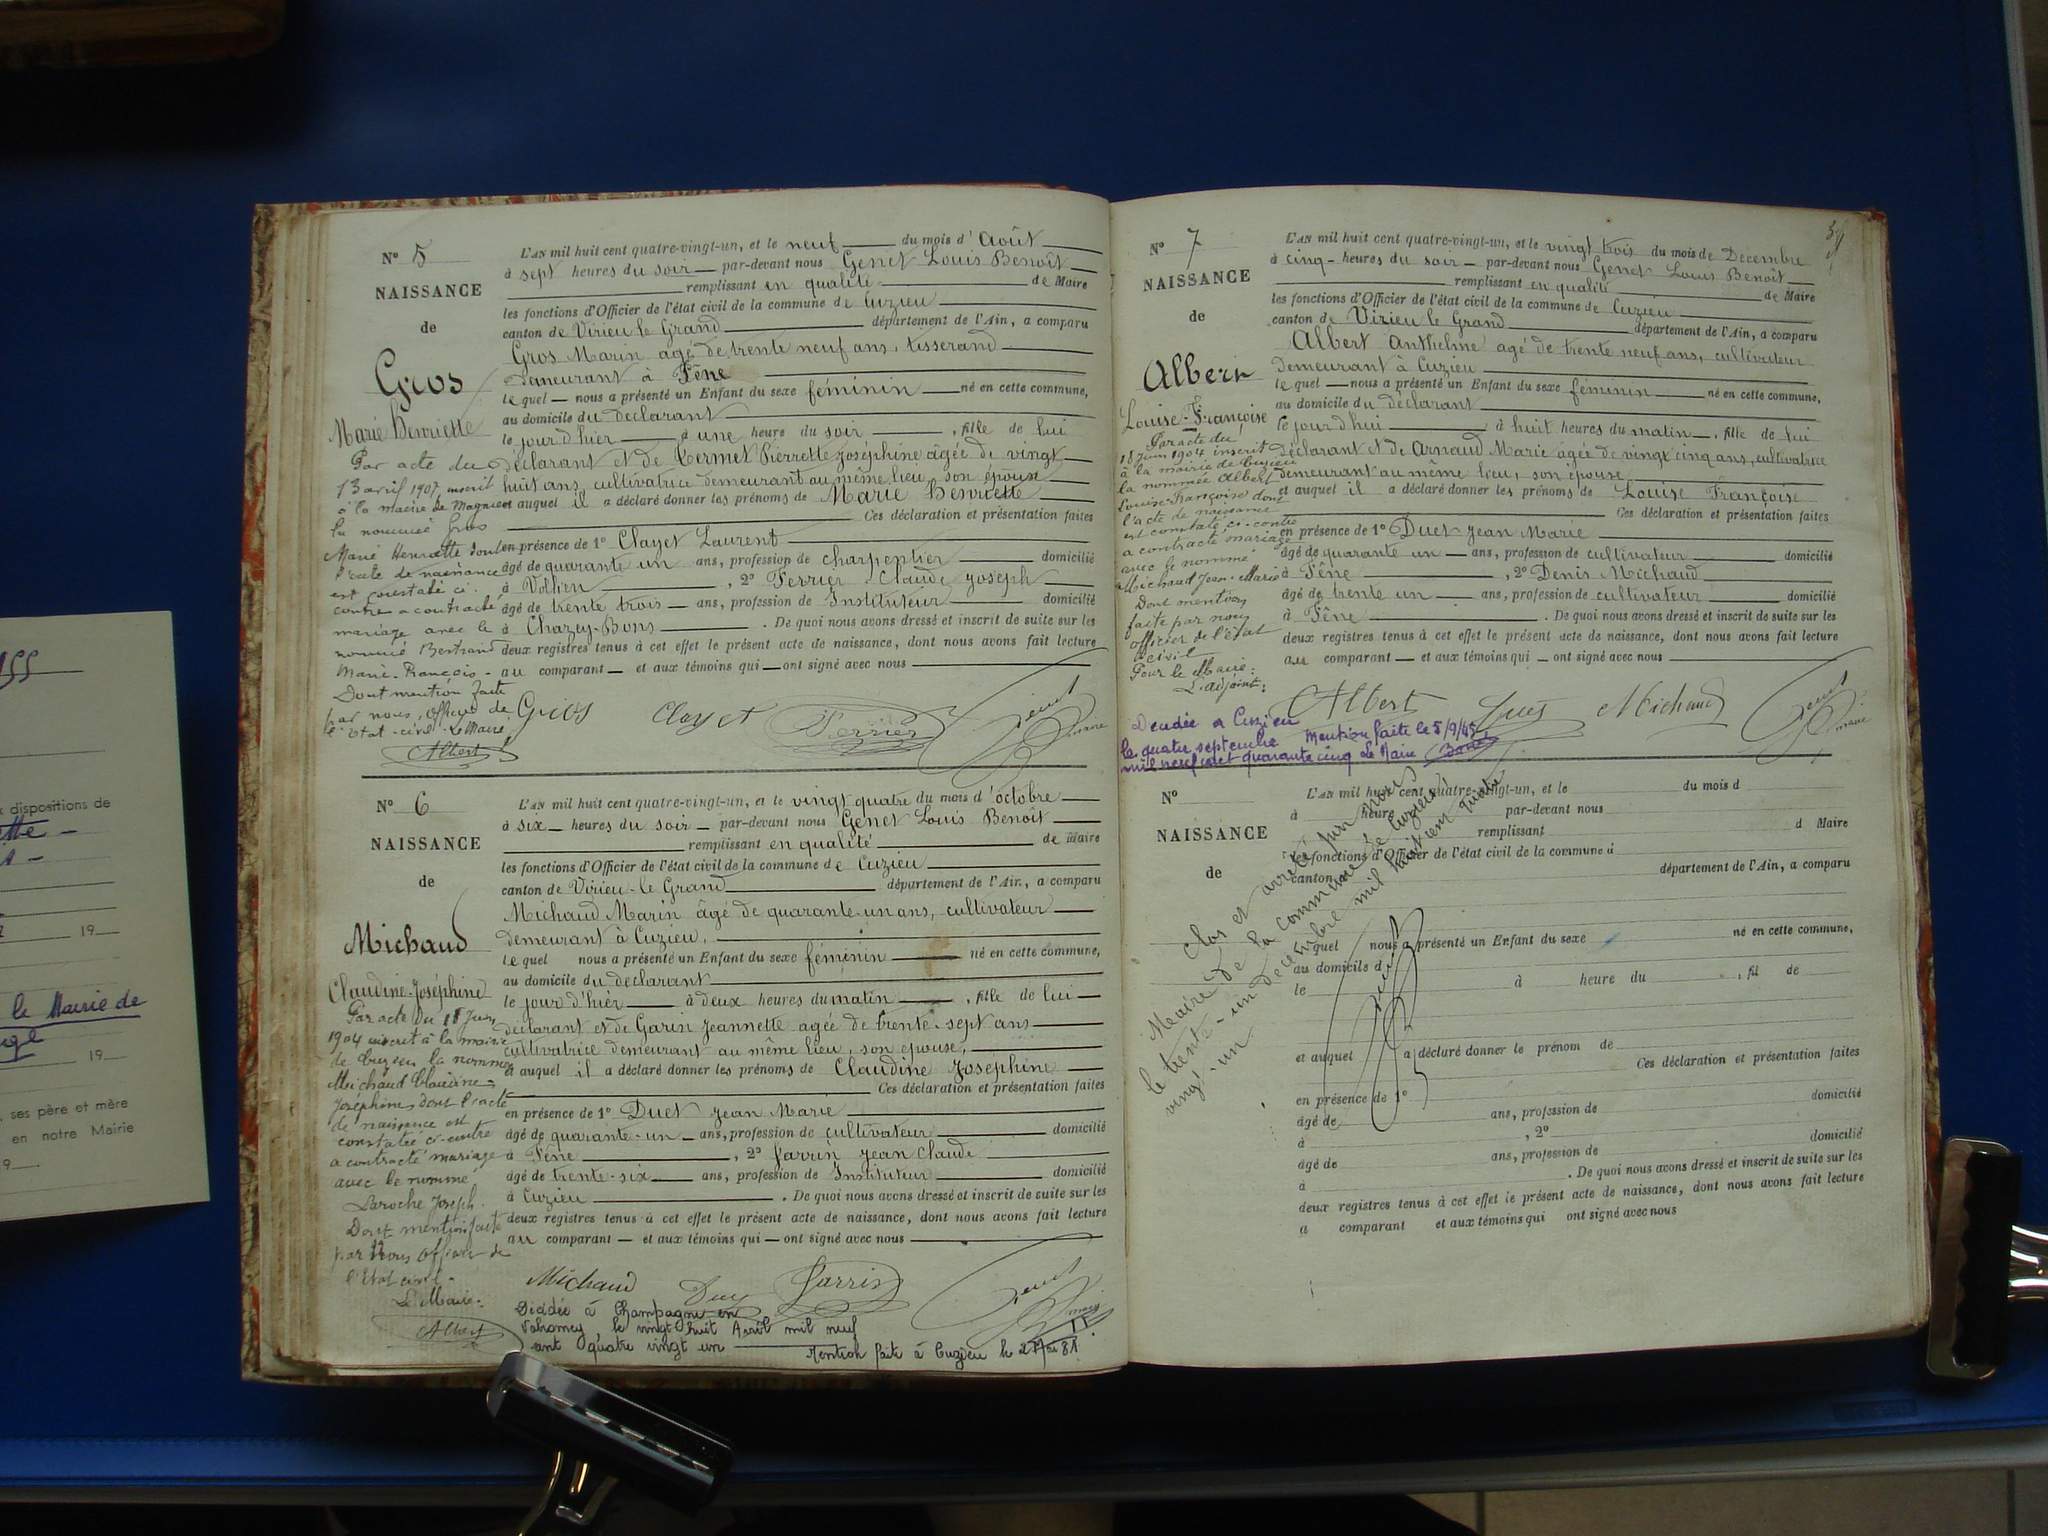 155
x dispositions de
19
le Mairie de
19
ses père et mère
en notre Mairie
N° 5
NAISSANCE
de
Gros
Marie Henriette
Par acte du
13 avril 1907, inscrit
à la mairie de
la nommée Gros
Marie Henriette dont
l'acte de naissance
est constaté ci-
contre a contracté
mariage avec le
nommé Bertrand
Marie-François -
Dont mention faite
par nous, officier de
l'Etat-civil - Le Maire
Albert
L'AN mil huit cent quatre-vingt-un, et le neuf du mois d'Août
à sept heures du soir — par-devant nous Genet Louis Benoît
remplissant en qualité de Maire
les fonctions d'Officier de l'état civil de la commune de Cuzieu
canton de Virieu le Grand département de l'Ain, a comparu
Gros Marin agé de trente neuf ans, tisserand
demeurant à Fêne
le quel — nous a présenté un Enfant du sexe féminin né en cette commune,
au domicile du déclarant
le jour d'hier à une heure du soir, fille de lui
déclarant et de Cermet Pierrette Joséphine âgée de vingt
huit ans, cultivatrice demeurant au même lieu, son épouse
et auquel il a déclaré donner les prénoms de Marie Henriette
Ces déclaration et présentation faites
en présence de 1° Clayet Laurent
âgé de quarante un ans, profession de charpentier domicilié
à Vollien, 2° Ferrier Claude Joseph
âgé de trente trois — ans, profession de Instituteur domicilié
à Chazey-Bons. De quoi nous avons dressé et inscrit de suite sur les
deux registres tenus à cet effet le présent acte de naissance, dont nous avons fait lecture
au comparant — et aux témoins qui — ont signé avec nous
Gros Clayet Ferrier Genet maire
N° 6
NAISSANCE
de
Michaud
Claudine-Joséphine
Par acte du 18 Juin
1904 inscrit à la mairie
de Cuzieu la nommée
Michaud Claudine-
Joséphine, dont l'acte
de naissance est
constatée ci-contre
a contracté mariage
avec le nommé
Laroche Joseph.
Dont mention faite
par Nous Officier de
l'Etat civil -
Le Maire:
Albert
L'AN mil huit cent quatre-vingt-un, et le vingt quatre du mois d'octobre
à six — heures du soir — par-devant nous Genet Louis Benoît
remplissant en qualité de Maire
les fonctions d'Officier de l'état civil de la commune de Cuzieu
canton de Virieu-le Grand département de l'Ain, a comparu
Michaud Marin âgé de quarante-un ans, cultivateur
demeurant à Cuzieu,
le quel nous a présenté un Enfant du sexe féminin né en cette commune,
au domicile du déclarant
le jour d'hier à deux heures du matin, fille de lui
déclarant et de Garin Jeannette agée de trente-sept ans
cultivatrice demeurant au même lieu, son épouse,
et auquel il a déclaré donner les prénoms de Claudine Joséphine
Ces déclaration et présentation faites
en présence de 1° Duet Jean Marie
âgé de quarante-un — ans, profession de cultivateur domicilié
à Fêne, 2° Jarrin Jean Claude
âgé de trente-six ans, profession de Instituteur domicilié
à Cuzieu. De quoi nous avons dressé et inscrit de suite sur les
deux registres tenus à cet effet le présent acte de naissance, dont nous avons fait lecture
au comparant — et aux témoins qui — ont signé avec nous
Michaud Duet Jarrin Genet maire
Décédée à Champagne en
Valromey, le vingt huit Avril mil neuf
cent quatre vingt un
Mention faite à Cuzieu le 2 Mai 81.
N° 7
NAISSANCE
de
Albert
Louise-Françoise
Par acte du
18 juin 1904 inscrit
à la mairie de Cuzieu
la nommée Albert
Louise-Françoise dont
l'acte de naissance
est constaté ci-contre
a contracté mariage
avec le nommé
Michaud Jean-Marie
Dont mention
faite par nous
officier de l'état
civil
Pour le Maire:
L'adjoint:
L'AN mil huit cent quatre-vingt-un, et le vingt trois du mois de Décembre
à cinq - heures du soir — par-devant nous Genet Louis Benoît
remplissant en qualité de Maire
les fonctions d'Officier de l'état civil de la commune de Cuzieu
canton de Virieu le Grand département de l'Ain, a comparu
Albert Anthelme agé de trente neuf ans, cultivateur
demeurant à Cuzieu
le quel — nous a présenté un Enfant du sexe féminin né en cette commune,
au domicile du déclarant
le jour d'hui à huit heures du matin, fille de lui
déclarant et de Arnaud Marie âgée de vingt cinq ans, cultivatrice
demeurant au même lieu, son épouse
et auquel il a déclaré donner les prénoms de Louise Françoise
Ces déclaration et présentation faites
en présence de 1° Duet Jean Marie
âgé de quarante un — ans, profession de cultivateur domicilié
à Fêne, 2° Denis Michaud
âgé de trente un — ans, profession de cultivateur domicilié
à Fêne. De quoi nous avons dressé et inscrit de suite sur les
deux registres tenus à cet effet le présent acte de naissance, dont nous avons fait lecture
au comparant — et aux témoins qui — ont signé avec nous
Albert Duet Michaud Genet maire
Décédée à Cuzieu
le quatre septembre Mention faite le 5/9/45
mil neuf cent quarante cinq Le Maire
N°
NAISSANCE
de
L'AN mil huit cent quatre-vingt-un, et le du mois d
à heure par-devant nous
remplissant d Maire
les fonctions d'Officier de l'état civil de la commune d
canton département de l'Ain, a comparu
quel nous a présenté un Enfant du sexe né en cette commune,
au domicile d
le à heure du, fil de
et auquel a déclaré donner le prénom de
Ces déclaration et présentation faites
en présence de 1°
âgé de ans, profession de domicilié
à, 2°
âgé de ans, profession de domicilié
à. De quoi nous avons dressé et inscrit de suite sur les
deux registres tenus à cet effet le présent acte de naissance, dont nous avons fait lecture
a comparant et aux témoins qui ont signé avec nous
Clos et arrêté par nous
Maire de la commune de Cuzieu
le trente-un décembre mil huit cent quatre
vingt-un
Genet